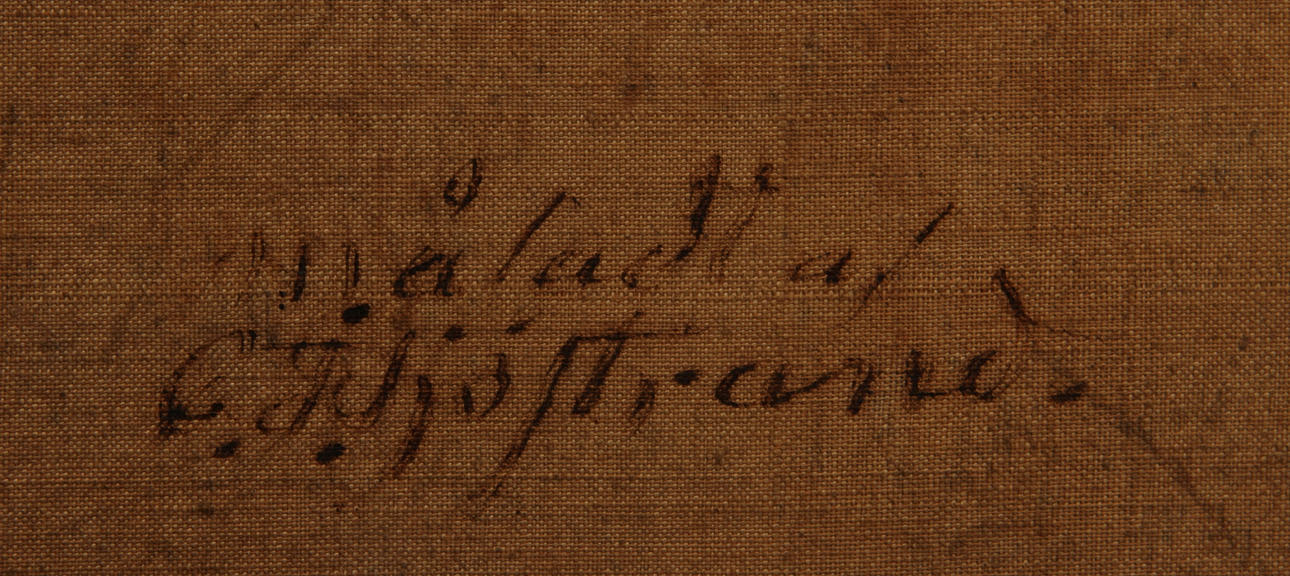 måladt af
C. F. Sjöstrand.